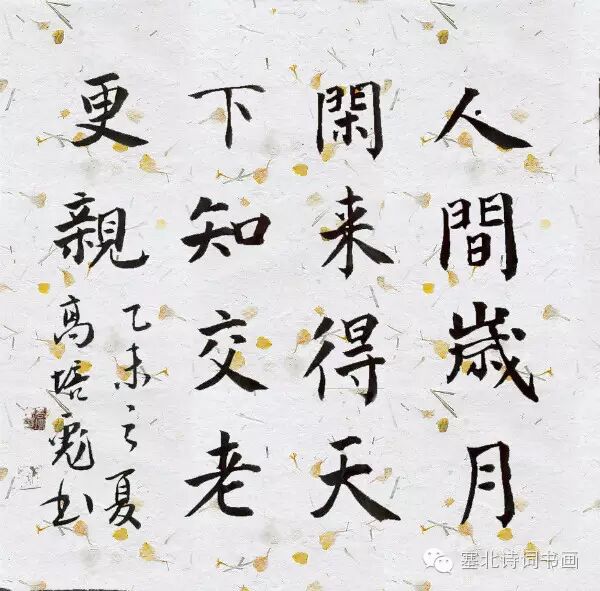 人間歲月
閑来得天
下知交老
更親
乙未之夏
高培 书
塞北诗词书画